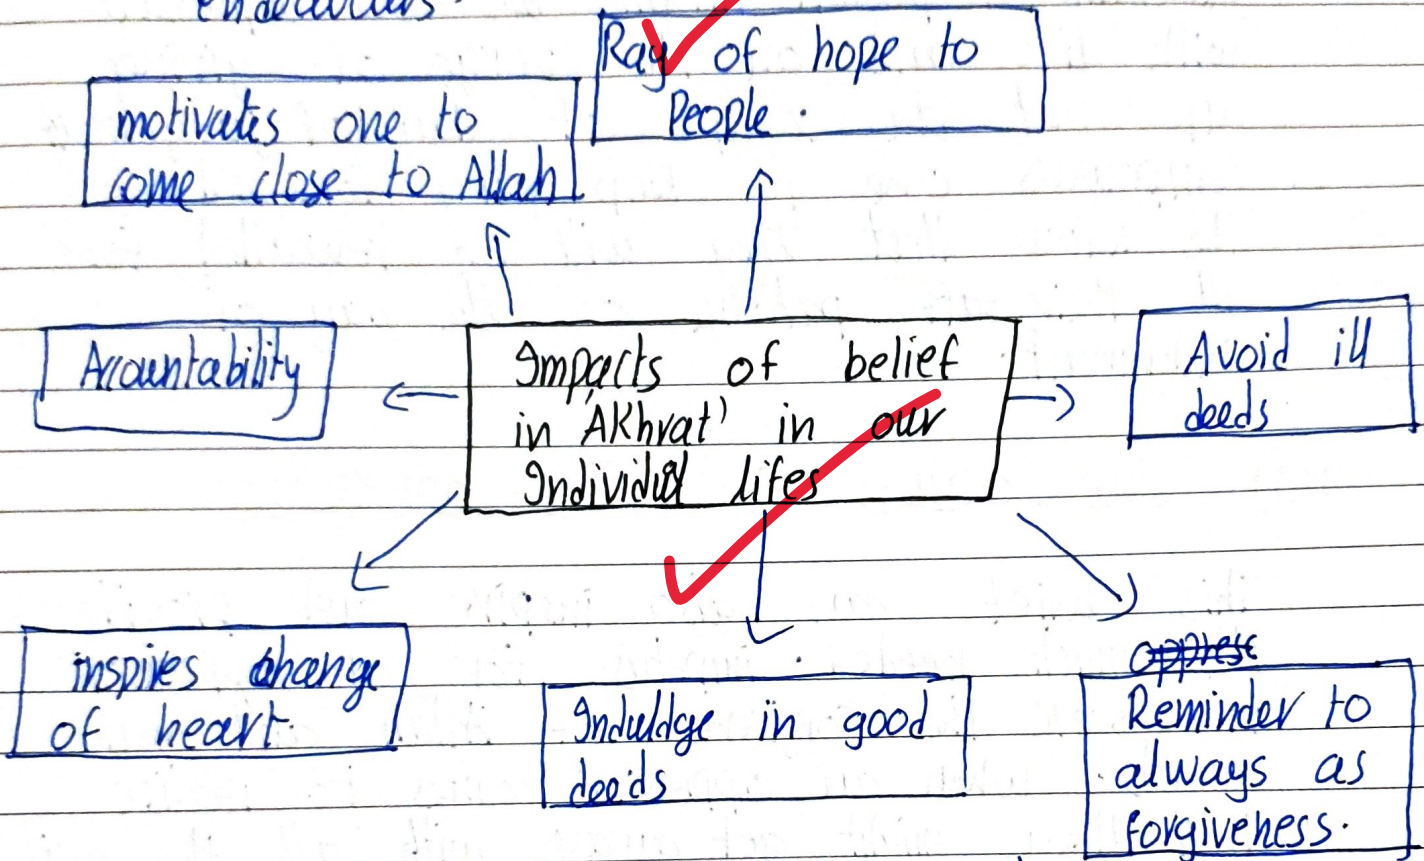 endeavours.
Ray of hope to
People.
motivates one to
come close to Allah
Accountability
Impacts of belief
in 'AKhrat' in our
Individual lifes
Avoid ill
deeds
inspires change
of heart.
Induldge in good
deeds
oppress
Reminder to
always as
forgiveness.